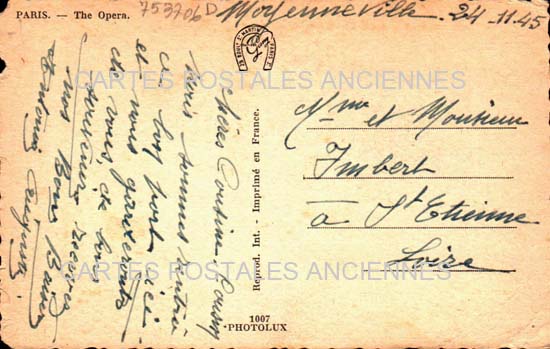 PARIS. - The Opera.
753706 D
Moyenneville. 24-11-45
CARTES POSTALES ANCIENNES
Chères Cousine, Cousin
Nous sommes rentrés
à bon port ici
et nous garderons
de vous, de bons
souvenirs recevez
nos Bons Baisers
Reprod. Int. - Imprimé en France.
1007
PHOTOLUX
Mme et Monsieur
Imbert
à St Etienne
Loire
CARTES POSTALES ANCIENNES